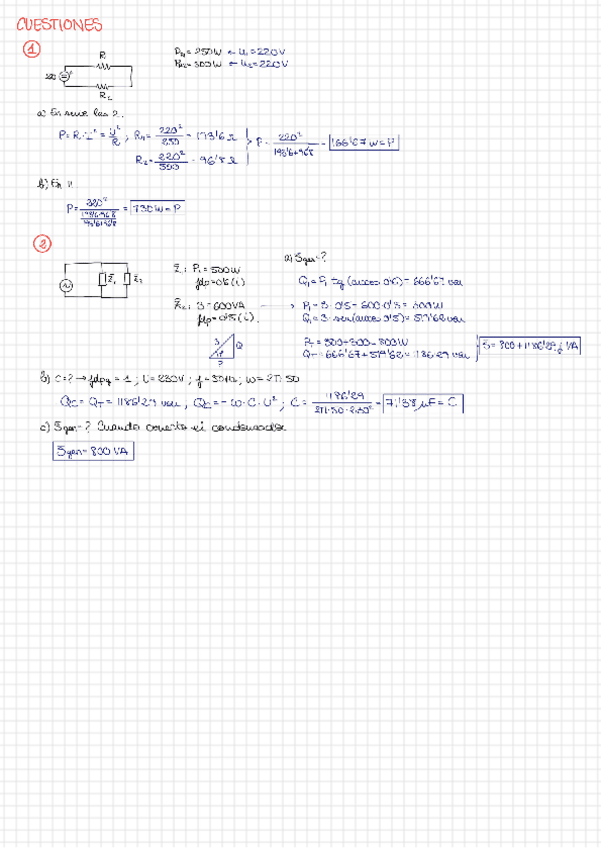 CUESTIONES
1
R
P₁ = 250W ← U₁ = 220V
P₂ = 500W ← U₂ = 220V
R₂
a) En serie las 2.
P = R·I² = U²/R ; R₁ = 220²/250 = 193'6 Ω
R₂ = 220²/500 = 96'8 Ω
P = 220²/(193'6+96'8) = 166'67 W = P
b) En //
P = 220²/(193'6·96'8/193'6+96'8) = 750 W = P
2
Z̄₁: P₁ = 500W
fdp = 0'6 (i)
Z̄₂: S = 600VA
fdp = 0'5 (i).
Z̄₁ Z̄₂
a) S̄gen = ?
Q₁ = P₁ tg (arccos 0'6) = 666'67 var
P₁ = S · 0'5 = 600·0'5 = 300W
Q₁ = S · sen(arccos 0'5) = 519'62 var
S Q
P
P_T = 500+300 = 800W
Q_T = 666'67 + 519'62 = 1186'29 var
S̄ = 800 + 1186'29j VA
b) C = ? → fdp = 1 ; U = 230V ; f = 50Hz ; w = 2π·50
Qc = Q_T = 1186'29 var ; Qc = -w·C·U² ; C = 1186'29/(2π·50·230²) = 71'38 µF = C
c) S̄gen = ? Cuando conecto el condensador
S̄gen = 800 VA